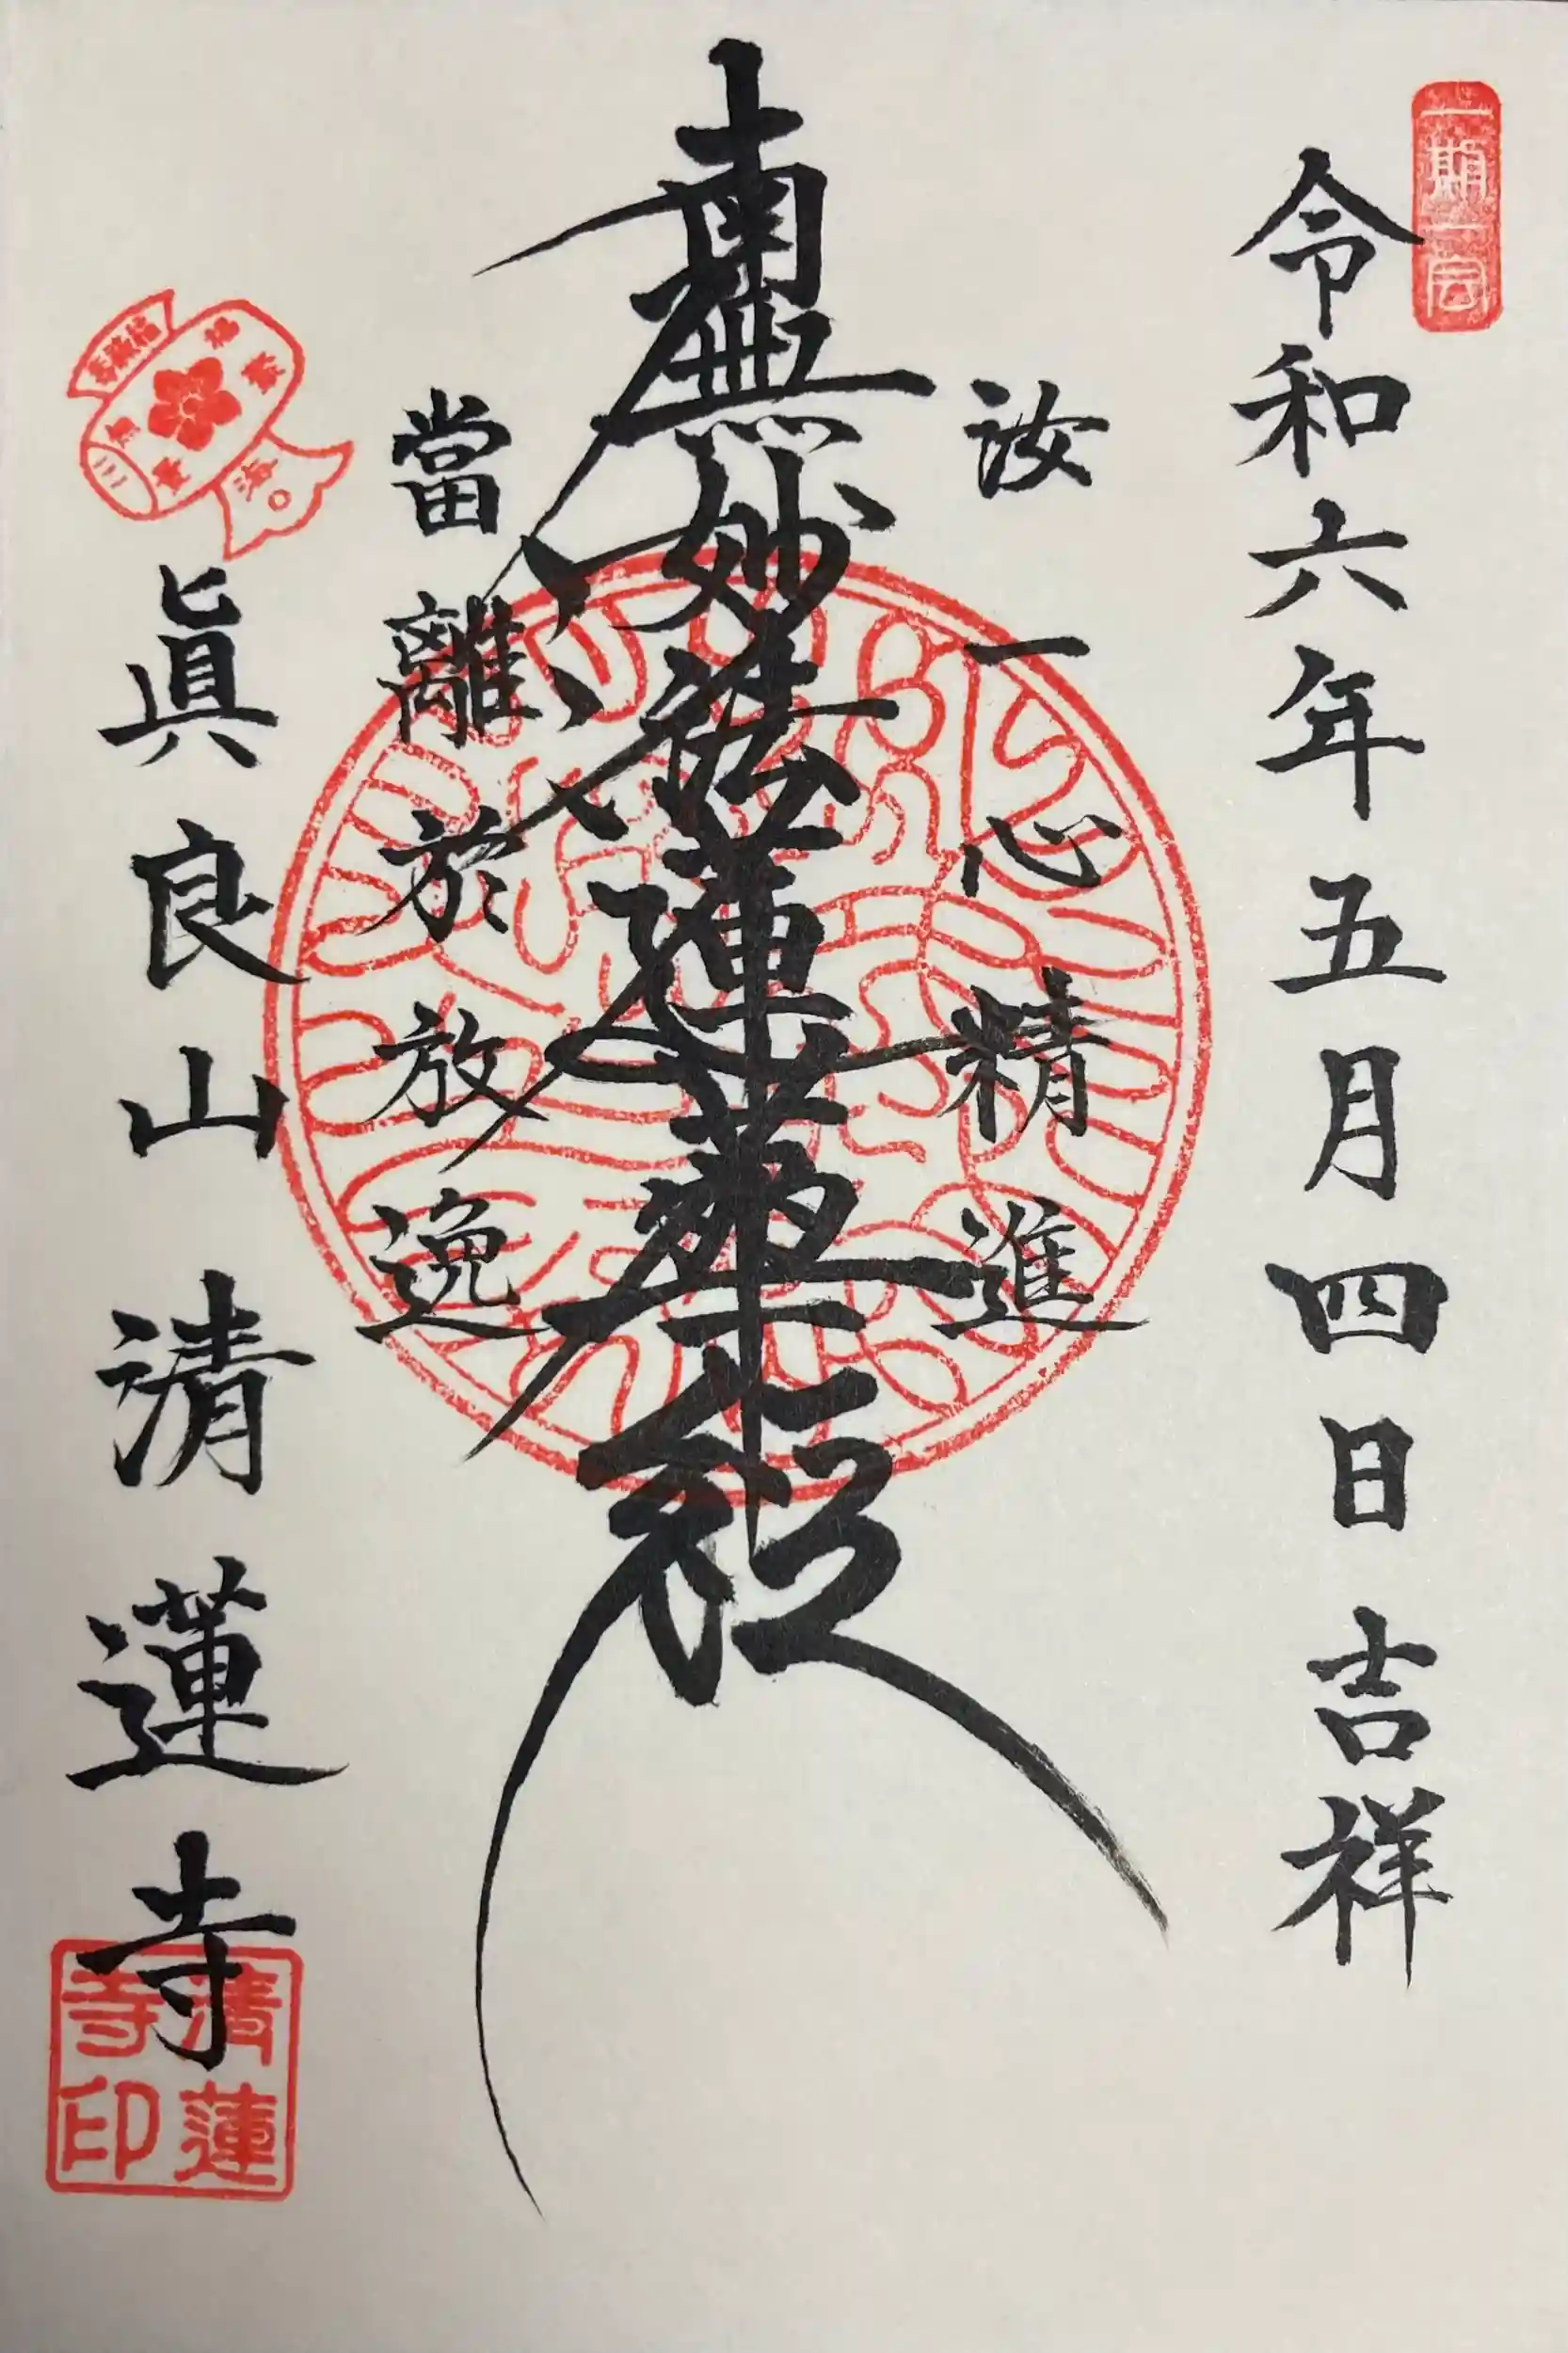 一期一会
令和六年五月四日吉祥
汝一心精進
南無妙法蓮華経
當離於放逸
眞良山清蓮寺
清蓮寺印